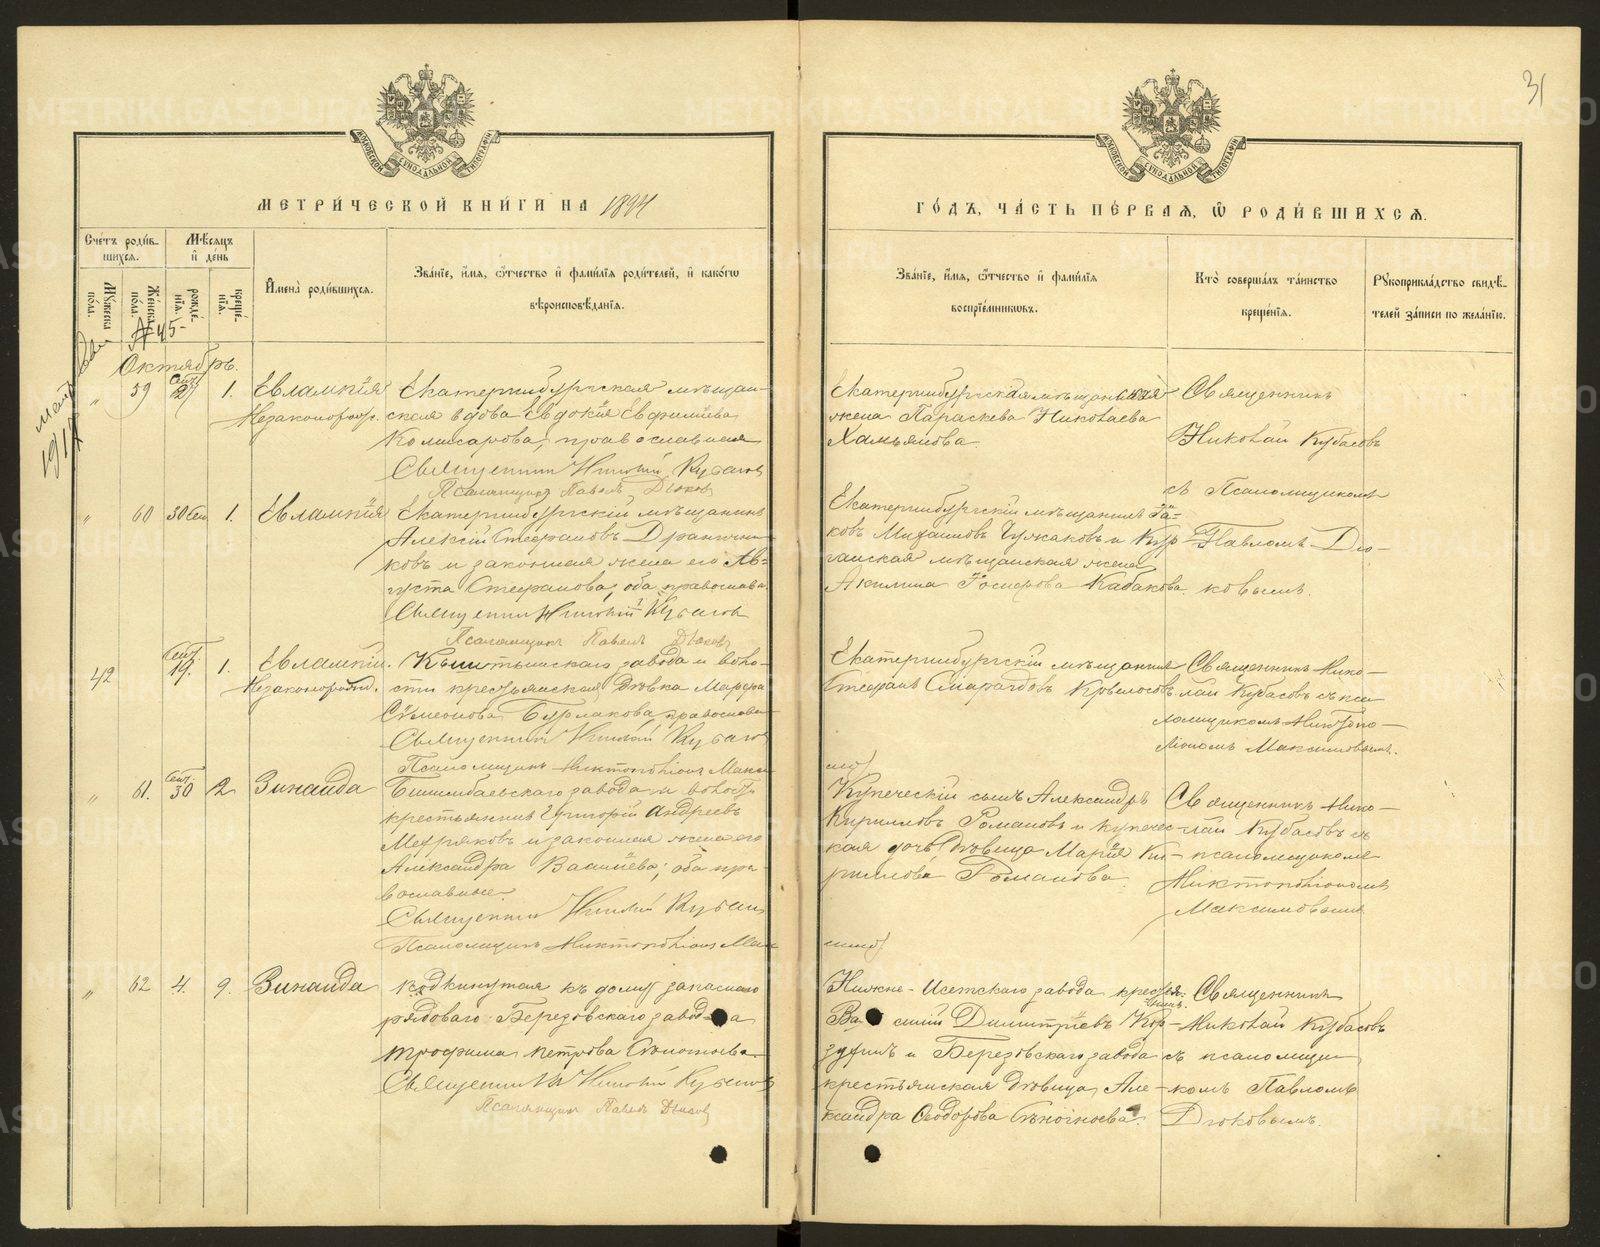 31
МОСКОВСКОЙ СѴНОДАЛЬНОЙ ТИПОГРАФІИ
МОСКОВСКОЙ СѴНОДАЛЬНОЙ ТИПОГРАФІИ
МЕТРИ́ЧЕСКОЙ КНИ́ГИ НА 1894
ГО́ДЪ, ЧА́СТЬ ПЕ́РВАѦ, Ѡ РОДИ́ВШИХСѦ.
Сче́тъ роди́вшихсѧ.
Мѣ́сѧцъ и҆ де́нь
Мꙋ́жеска по́ла.
Же́нска по́ла.
рожде́нїѧ.
креще́нїѧ.
И҆мена̀ роди́вшихсѧ.
Зва́нїе, и҆́мѧ, ѻ҆́тчество и҆ фами́лїѧ роди́телей, и҆ како́гѡ
вѣроисповѣ́данїѧ.
Зва́нїе, и҆́мѧ, ѻ҆́тчество и҆ фами́лїѧ
воспрїе́мникѡвъ.
Кто̀ соверша́лъ та́инство
креще́нїѧ.
Рꙋкоприкла́дство свидѣ́телей за́писи по жела́нїю.
№ 45
Октябрь.
" 59 Сент. 27 1. Евлампія
Незаконорожд.
Екатеринбургская мѣщан-
ская вдова Евдокія Евфиміева
Комисарова, православная
Священник Николай Кубасов
Псаломщик Павел Дюков
Екатеринбургская мѣщанская
жена Параскева Николаева
Хамьянова
Священникъ
Николай Кубасовъ
съ Псаломщикомъ
" 60 30 Сен 1. Евлампія
Екатеринбургскій мѣщанинъ
Алексій Стефановъ Дранични-
ковъ и законная жена его Ав-
густа Стефанова, оба православн.
Священник Николай Кубасов
Псаломщик Павел Дюков
Екатеринбургскій мѣщанинъ Іа-
ковъ Михаиловъ Чужаковъ и Кур-
ганская мѣщанская жена
Акилина Іосифова Кабакова.
Павломъ Дю-
ковымъ.
42 Сент. 19. 1. Евлампій.
Незаконорожд.
Кыштымскаго завода и воло-
сти крестьянская дѣвка Марфа
Сѵмеонова Бурлакова, православн
Священник Николай Кубасов
Псаломщикъ Никтополіонъ Макси
Екатеринбургскій мѣщанинъ
Стефанъ Смарагдовъ Крылосовъ
Священникъ Нико-
лай Кубасовъ съ пса
ломщикомъ Никтопо-
ліономъ Максимовымъ.
" 61. Сент. 30 2 Зинаида
Билимбаевскаго завода и волости
крестьянинъ Григорій Андреевъ
Метряковъ и законная жена его
Александра Василіева; оба пра-
вославные
Священник Николай Кубасов
Псаломщикъ Никтополіонъ Мак
Купеческій сынъ Александръ
Кирилловъ Романовъ и купечес-
кая дочь дѣвица Марія Ки-
риллова Романова.
Священникъ Нико-
лай Кубасовъ съ
псаломщикомъ
Никтополіономъ
Максимовымъ
" 62 4. 9. Зинаида
Подкинутая къ дому запаснаго
рядоваго Березовскаго завода
Трофима Петрова
Священник Николай Кубасов
Псаломщик Павел Дюков
Нижне-Исетскаго завода крестьянинъ
Василій Димитріевъ Кор-
зухинъ и Березовскаго завода
крестьянская дѣвица Але-
ксандра Ѳеодорова
Священникъ
Николай Кубасовъ
съ псаломщи
комъ Павломъ
Дюковымъ.